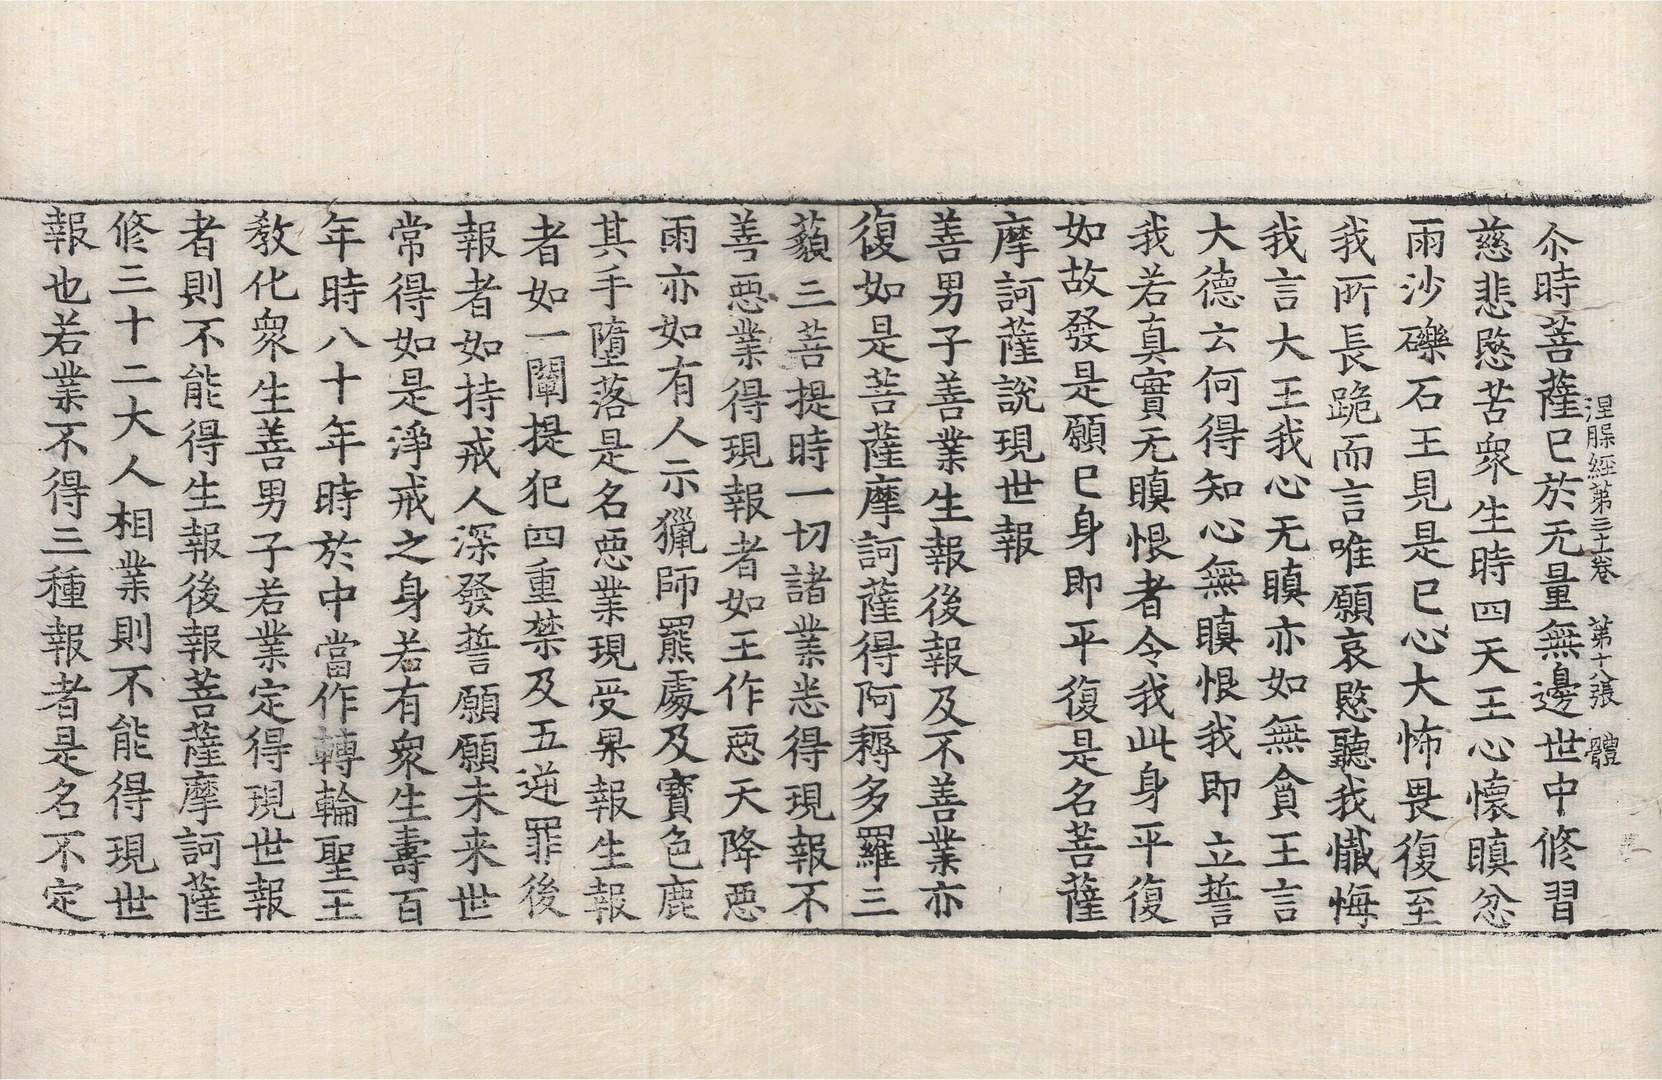 涅槃經第三十一卷　第十八張　體
尒時菩薩已於无量無邊世中修習
慈悲愍苦衆生時四天王心懷瞋忿
雨沙礫石王見是已心大怖畏復至
我所長跪而言唯願哀愍聽我懺悔
我言大王我心无瞋亦如無貪王言
大德云何得知心無瞋恨我即立誓
我若真實无瞋恨者令我此身平復
如故發是願已身即平復是名菩薩
摩訶薩說現世報
善男子善業生報後報及不善業亦
復如是菩薩摩訶薩得阿耨多羅三
藐三菩提時一切諸業悉得現報不
善惡業得現報者如王作惡天降惡
雨亦如有人示獵師羆處及寶色鹿
其手墮落是名惡業現受果報生報
者如一闡提犯四重禁及五逆罪後
報者如持戒人深發誓願願未来世
常得如是淨戒之身若有衆生壽百
年時八十年時於中當作轉輪聖王
敎化衆生善男子若業定得現世報
者則不能得生報後報菩薩摩訶薩
修三十二大人相業則不能得現世
報也若業不得三種報者是名不定